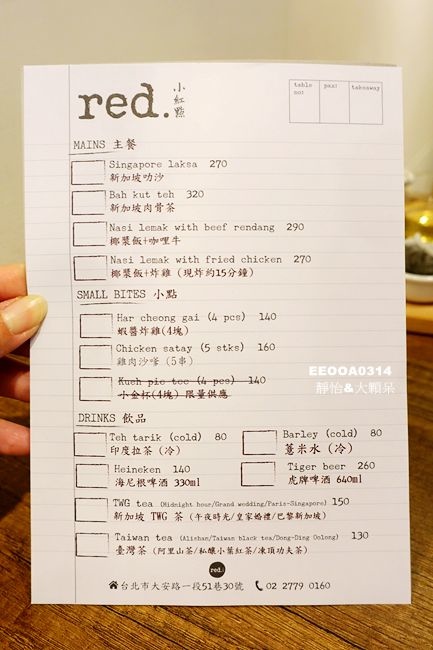 red. 小紅點
table no: pax: takeaway
MAINS 主餐
Singapore laksa 270
新加坡叻沙
Bah kut teh 320
新加坡肉骨茶
Nasi lemak with beef rendang 290
椰漿飯+咖哩牛
Nasi lemak with fried chicken 270
椰漿飯+炸雞 (現炸約15分鐘)
SMALL BITES 小點
Har cheong gai (4 pcs) 140
蝦醬炸雞(4塊)
Chicken satay (5 stks) 160
雞肉沙爹 (5串)
Kueh pie tee (4 pcs) 140
小金杯(4塊) 限量供應
EEOOA0314
靜怡&大顆呆
DRINKS 飲品
Teh tarik (cold) 80
印度拉茶 (冷)
Barley (cold) 80
薏米水 (冷)
Heineken 140
海尼根啤酒 330ml
Tiger beer 260
虎牌啤酒 640ml
TWG tea (Midnight hour/Grand wedding/Paris-Singapore) 150
新加坡 TWG 茶 (午夜時光/皇家婚禮/巴黎新加坡)
Taiwan tea (Alishan/Taiwan black tea/Dong-Ding Oolong) 130
臺灣茶 (阿里山茶/私釀小葉紅茶/凍頂功夫茶)
red.
台北市大安路一段51巷30號 02 2779 0160